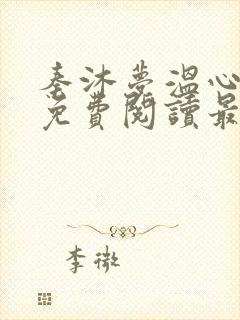 秦沐夢溫心
免費閱讀最
李微